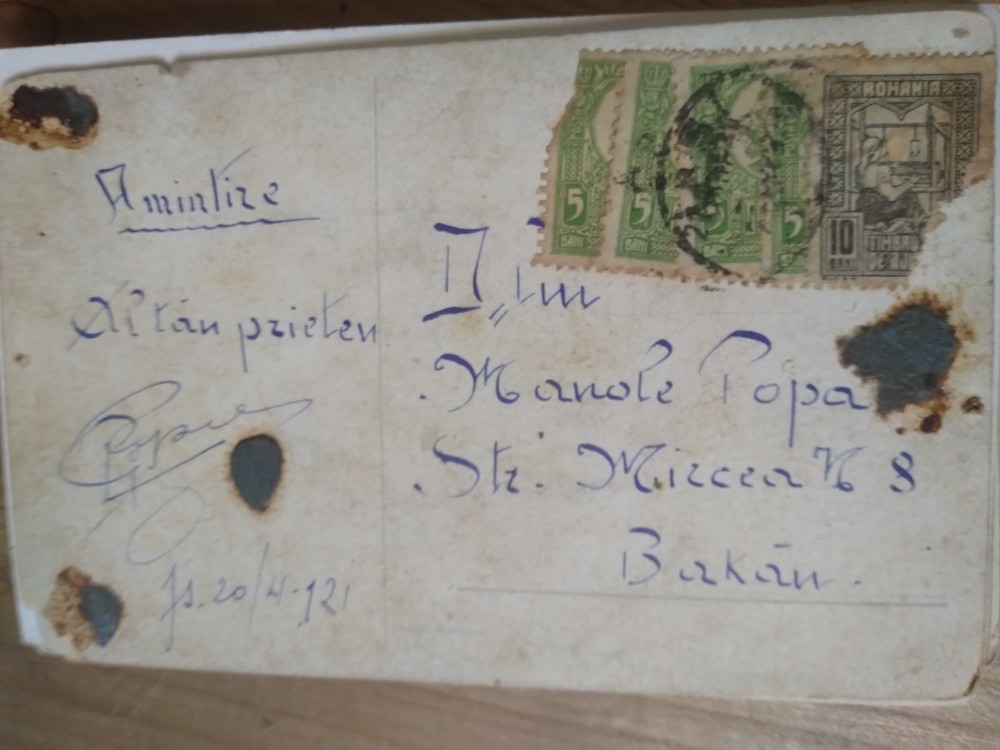 Amintire
Al tău prieten
Popa
Is. 20/4-921
D„lui
Manole Popa
Str. Mircea N 8
Bakău.
5
BANI
5
BANI
5
BANI
5
ROMANIA
10
BANI
TIMBRU